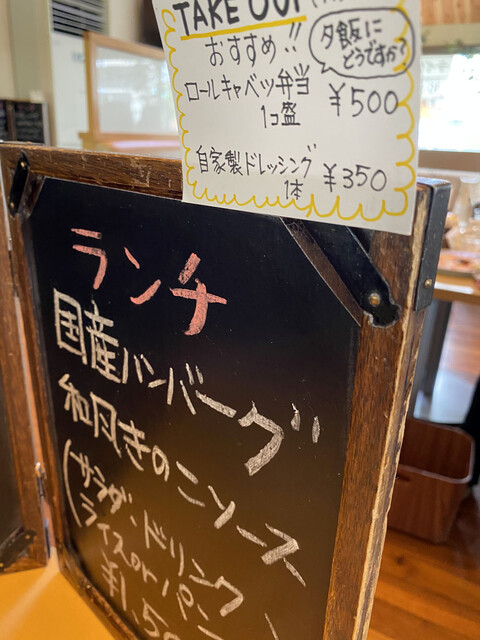 TAKE OUT
おすすめ!!
夕飯に
どうですか?
ロールキャベツ弁当
1コ盛 ¥500
自家製ドレッシング
1本 ¥350
ランチ
国産ハンバーグ
和風きのこソース
(サラダ、ドリンク
ライスorパン
¥1,50